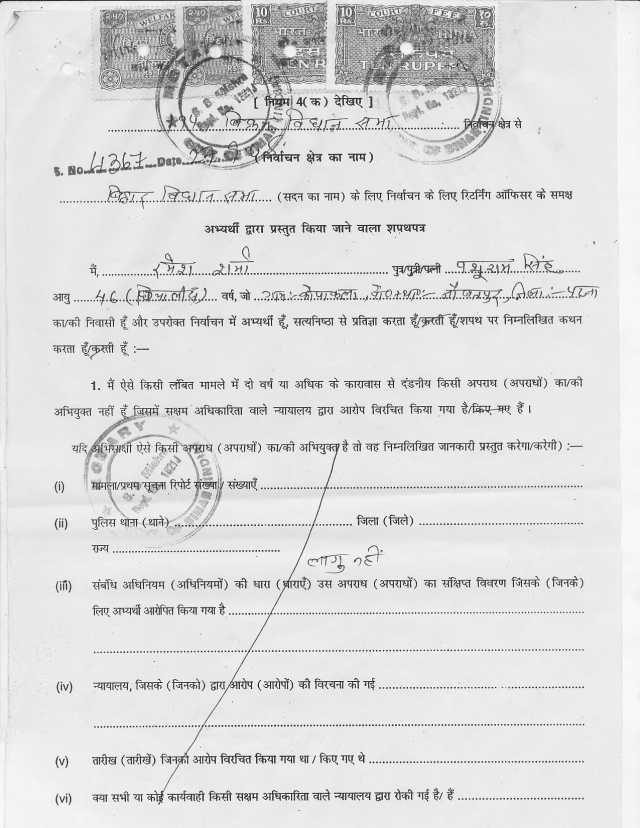 WELFARE
COURT FEE
10 Rs.
भारत
TEN RUPEES
COURT FEE
10 Rs.
भारत
TEN RUPEES
NOTARY
[ नियम 4(क) देखिए ]
विक्रम विधान सभा निर्वाचन क्षेत्र से
S. No. 4367 Date (निर्वाचन क्षेत्र का नाम)
बिहार विधान सभा (सदन का नाम) के लिए निर्वाचन के लिए रिटर्निंग ऑफिसर के समक्ष
अभ्यर्थी द्वारा प्रस्तुत किया जाने वाला शपथपत्र
मैं, रमेश शर्मा पुत्र/पुत्री/पत्नी परशुराम सिंह
आयु 46 (छियालीस) वर्ष, जो ग्राम:- कोपाकला, पो०+थाना:- नौबतपुर, जिला:- पटना
का/की निवासी हूँ और उपरोक्त निर्वाचन में अभ्यर्थी हूँ, सत्यनिष्ठा से प्रतिज्ञा करता हूँ/करती हूँ/शपथ पर निम्नलिखित कथन
करता हूँ/करती हूँ :—
1. मैं ऐसे किसी लंबित मामले में दो वर्ष या अधिक के कारावास से दंडनीय किसी अपराध (अपराधों) का/की
अभियुक्त नहीं हूँ जिसमें सक्षम अधिकारिता वाले न्यायालय द्वारा आरोप विरचित किया गया है/किए गए हैं ।
यदि अभिसाक्षी ऐसे किसी अपराध (अपराधों) का/की अभियुक्त है तो वह निम्नलिखित जानकारी प्रस्तुत करेगा/करेगी) :—
NOTARY
(i) मामला/प्रथम सूचना रिपोर्ट संख्या / संख्याएँ
(ii) पुलिस थाना (थाने) जिला (जिले)
राज्य
लागु नहीं
(iii) संबंधि अधिनियम (अधिनियमों) की धारा (धाराएँ) उस अपराध (अपराधों) का संक्षिप्त विवरण जिसके (जिनके)
लिए अभ्यर्थी आरोपित किया गया है
(iv) न्यायालय, जिसके (जिनको) द्वारा आरोप (आरोपों) की विरचना की गई
(v) तारीख (तारीखें) जिनको आरोप विरचित किया गया था / किए गए थे
(vi) क्या सभी या कोई कार्यवाही किसी सक्षम अधिकारिता वाले न्यायालय द्वारा रोकी गई है/ हैं